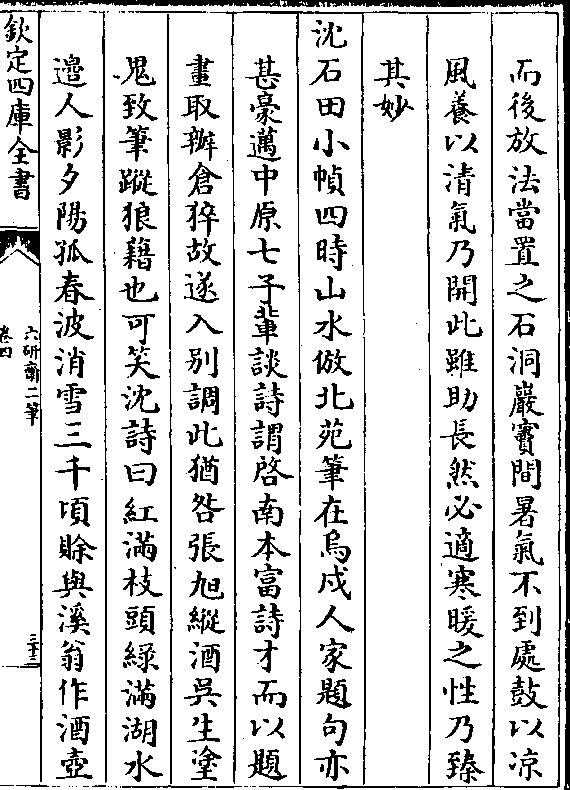 而後放法當置之石洞巖竇間暑氣不到處鼓以凉
風養以清氣乃開此雖助長然必適寒暖之性乃臻
其妙
沈石田小幀四時山水倣北苑筆在烏戍人家題句亦
甚豪邁中原七子輩談詩謂啓南本富詩才而以題
畫取辦倉猝故遂入别調此猶咎張旭縱酒吳生塗
鬼致筆蹤狼籍也可笑沈詩曰紅滿枝頭綠滿湖水
邉人影夕陽孤春波消雪三千頃賒與溪翁作酒壺
欽定四庫全書
六研齋二筆
卷四
三十三